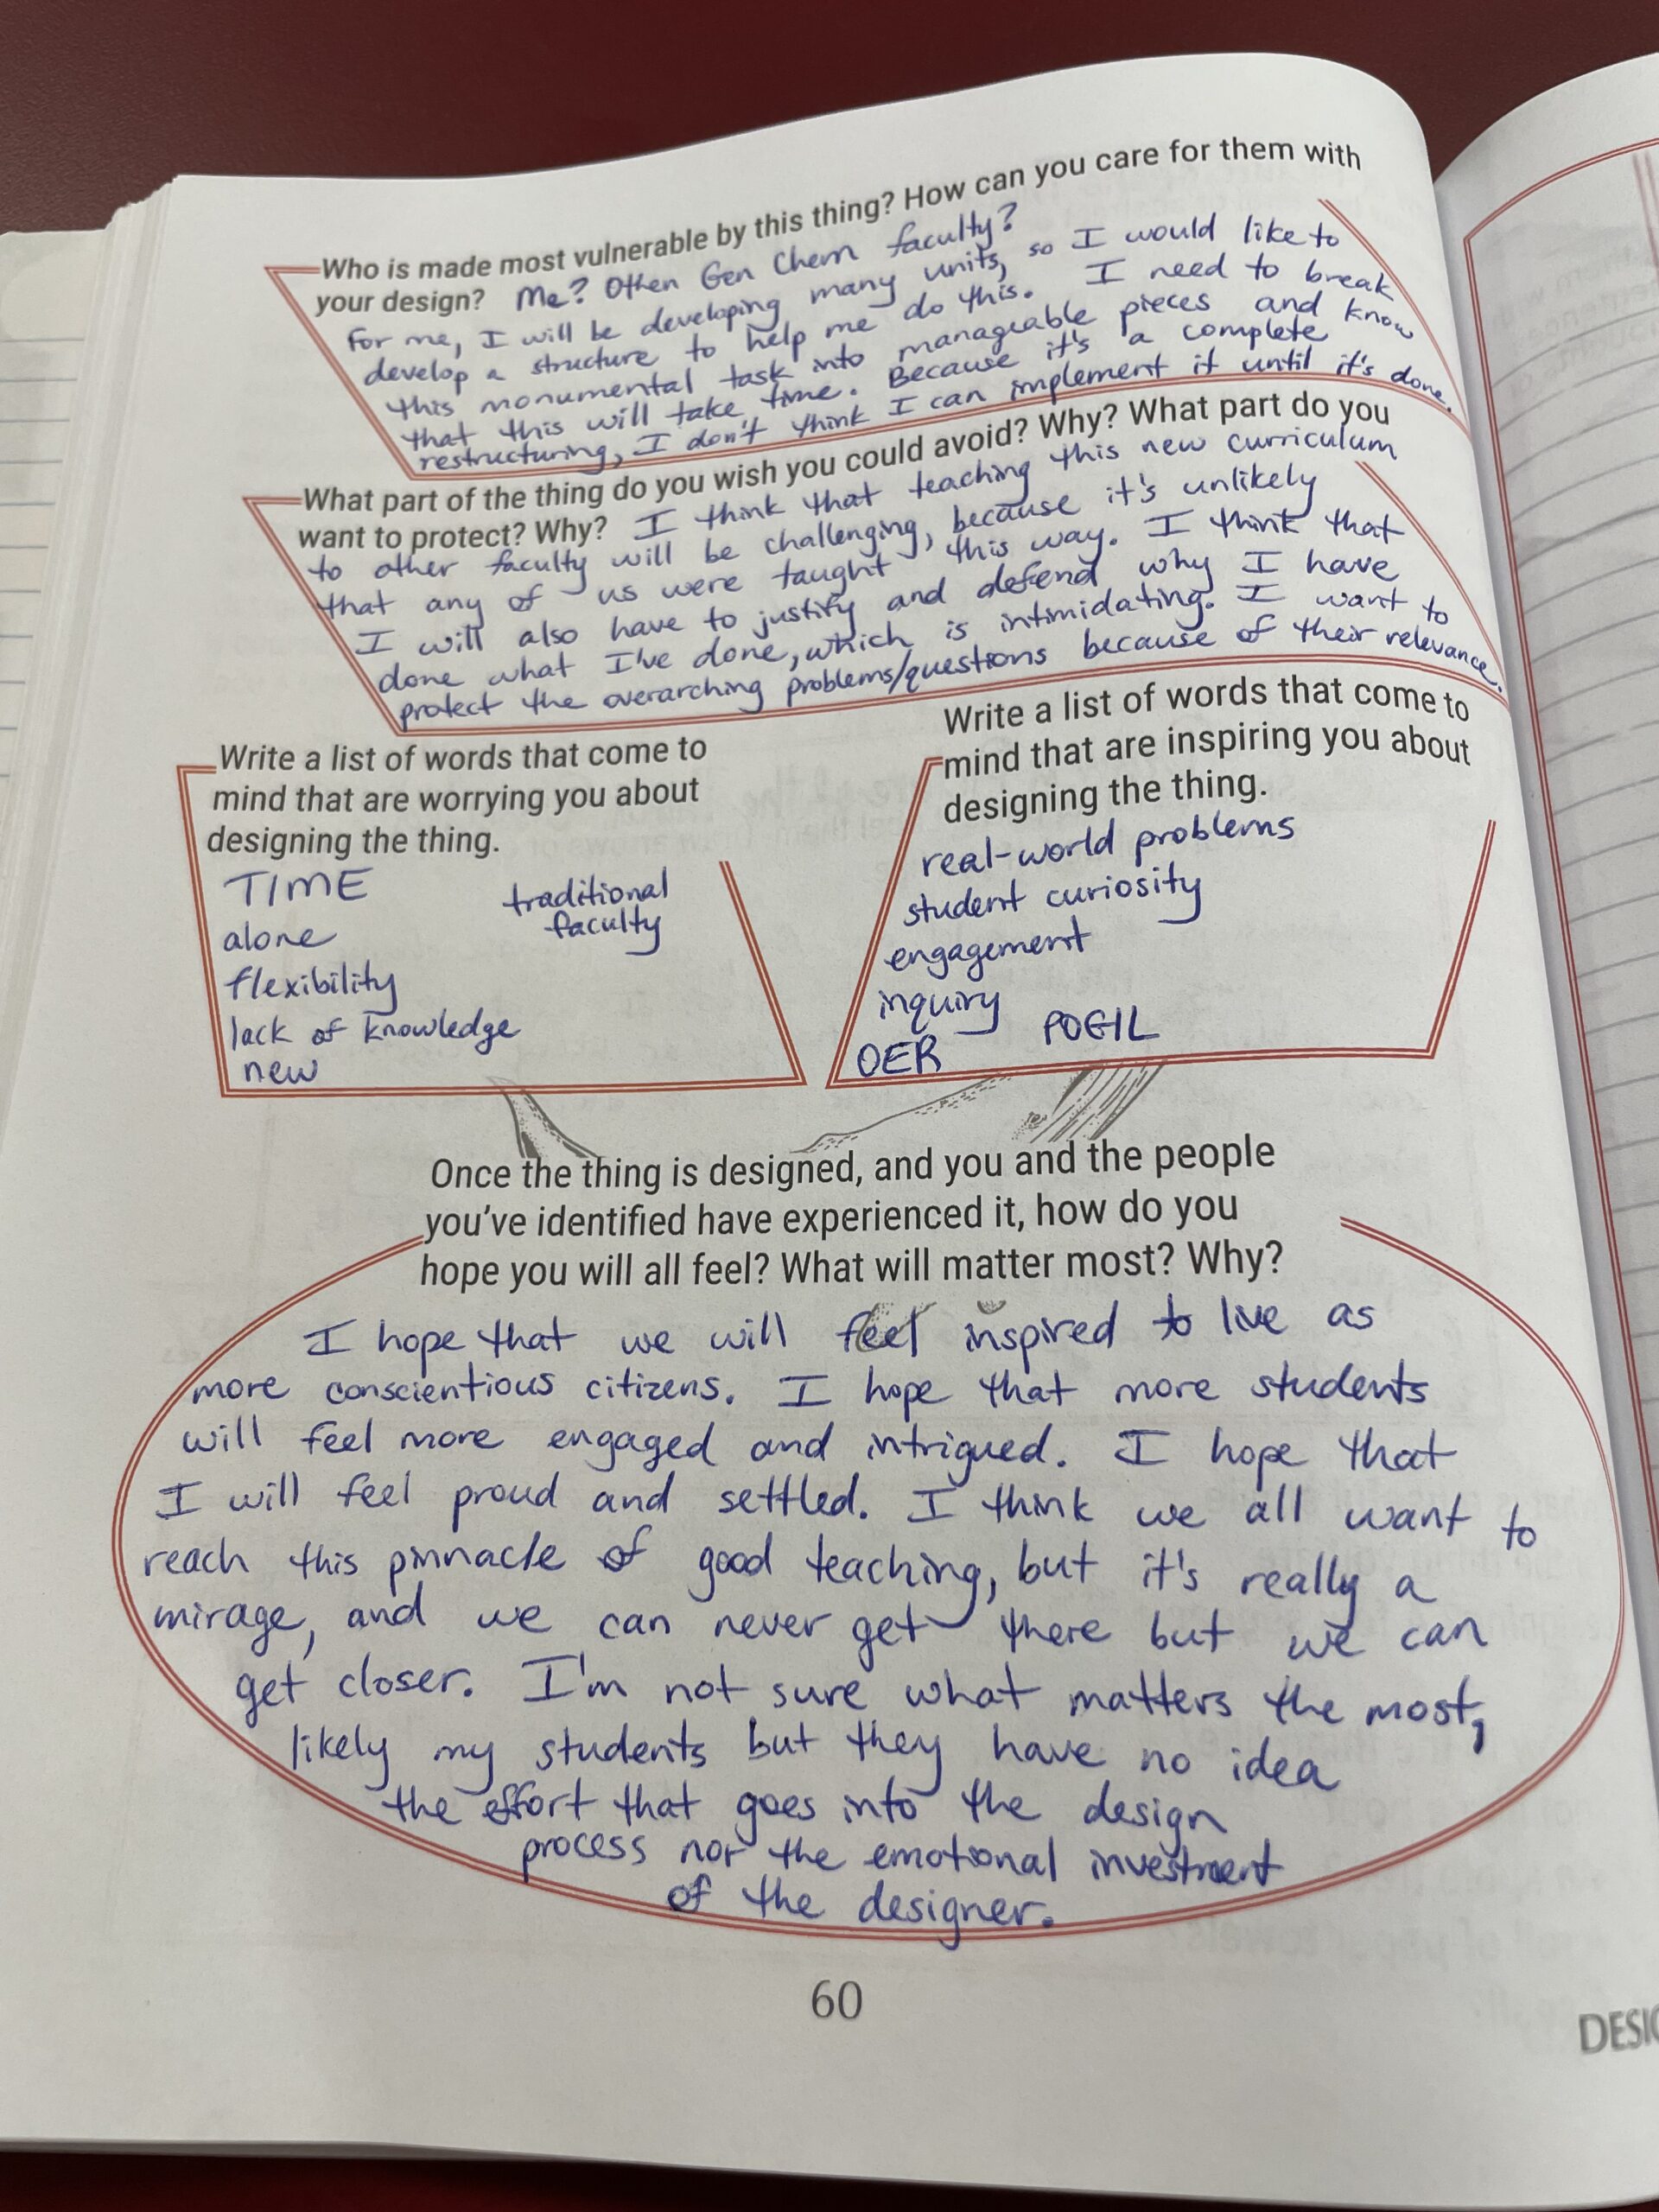 Who is made most vulnerable by this thing? How can you care for them with
your design? Me? Other Gen Chem faculty?
For me, I will be developing many units, so I would like to
develop a structure to help me do this. I need to break
this monumental task into manageable pieces and know
that this will take time. Because it's a complete
restructuring, I don't think I can implement it until it's done.
What part of the thing do you wish you could avoid? Why? What part do you
want to protect? Why? I think that teaching this new curriculum
to other faculty will be challenging, because it's unlikely
that any of us were taught this way. I think that
I will also have to justify and defend why I have
done what I've done, which is intimidating. I want to
protect the overarching problems/questions because of their relevance.
Write a list of words that come to
mind that are worrying you about
designing the thing.
TIME
alone
flexibility
lack of knowledge
new
traditional
faculty
Write a list of words that come to
mind that are inspiring you about
designing the thing.
real-world problems
student curiosity
engagement
inquiry
OER
POGIL
Once the thing is designed, and you and the people
you've identified have experienced it, how do you
hope you will all feel? What will matter most? Why?
I hope that we will feel inspired to live as
more conscientious citizens. I hope that more students
will feel more engaged and intrigued. I hope that
I will feel proud and settled. I think we all want to
reach this pinnacle of good teaching, but it's really a
mirage, and we can never get there but we can
get closer. I'm not sure what matters the most,
likely my students but they have no idea
the effort that goes into the design
process nor the emotional investment
of the designer.
60